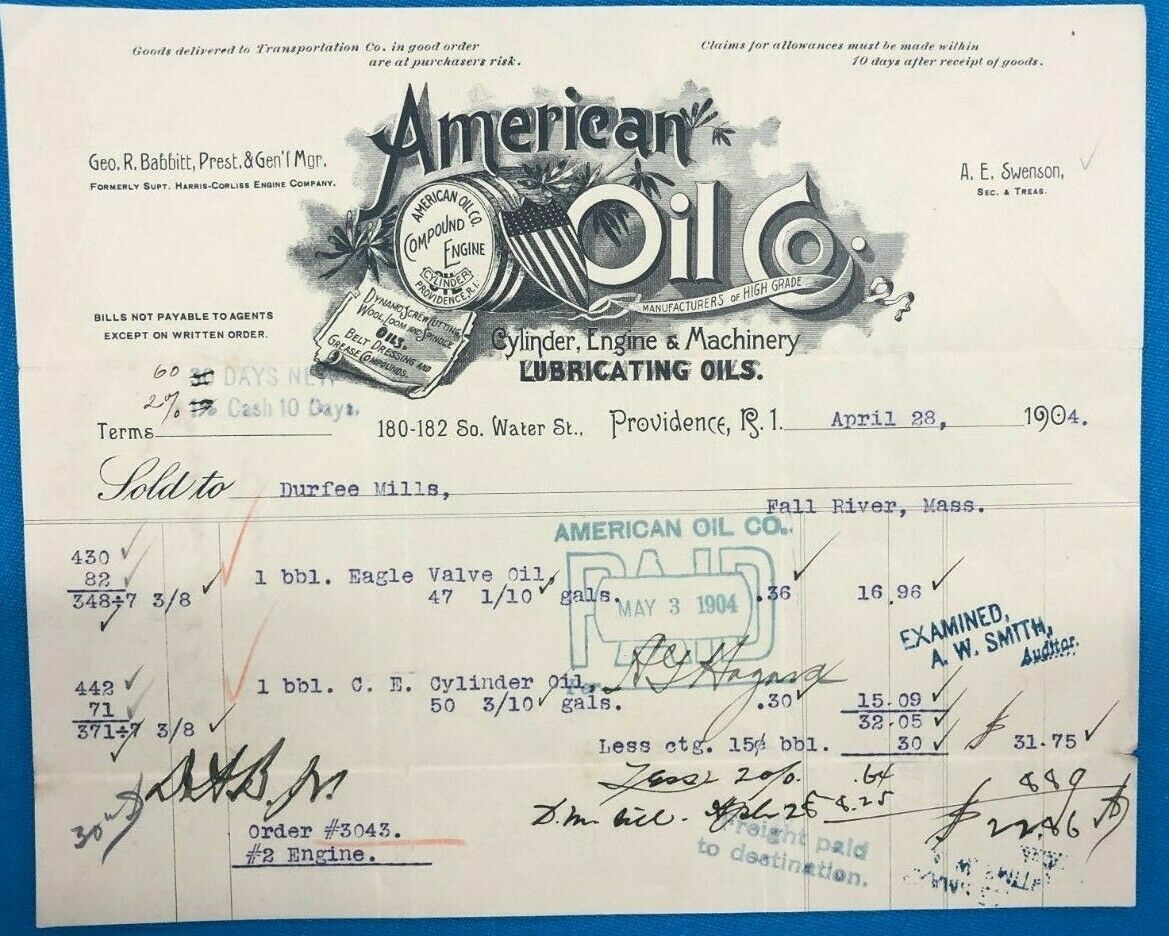 Goods delivered to Transportation Co. in good order
are at purchasers risk.
Claims for allowances must be made within
10 days after receipt of goods.
American
Oil Co.
Geo. R. Babbitt, Prest. & Gen'l Mgr.
FORMERLY SUPT. HARRIS-CORLISS ENGINE COMPANY.
A. E. Swenson,
SEC. & TREAS.
AMERICAN OIL CO.
COMPOUND
ENGINE
CYLINDER
OIL
PROVIDENCE, R.I.
MANUFACTURERS OF HIGH GRADE
DYNAMO, SCREW CUTTING,
WOOL, LOOM AND SPINDLE
OILS.
BELT DRESSING AND
GREASE COMPOUNDS.
BILLS NOT PAYABLE TO AGENTS
EXCEPT ON WRITTEN ORDER.
Cylinder, Engine & Machinery
LUBRICATING OILS.
60 30 DAYS NET
2% 1% Cash 10 Days.
Terms
180-182 So. Water St., Providence, R. I. April 28, 1904.
Sold to Durfee Mills,
Fall River, Mass.
AMERICAN OIL CO.
PAID
MAY 3 1904
430
82
348÷7 3/8
1 bbl. Eagle Valve Oil,
47 1/10 gals. .36 16.96
EXAMINED,
A. W. SMITH,
Auditor.
442
71
371÷7 3/8
1 bbl. C. E. Cylinder Oil,
50 3/10 gals. .30 15.09
32.05
Less ctg. 15¢ bbl. 30 $ 31.75
Less 2% .64
8.25 8 89
$ 22.86
Order #3043.
#2 Engine.
Freight paid
to destination.